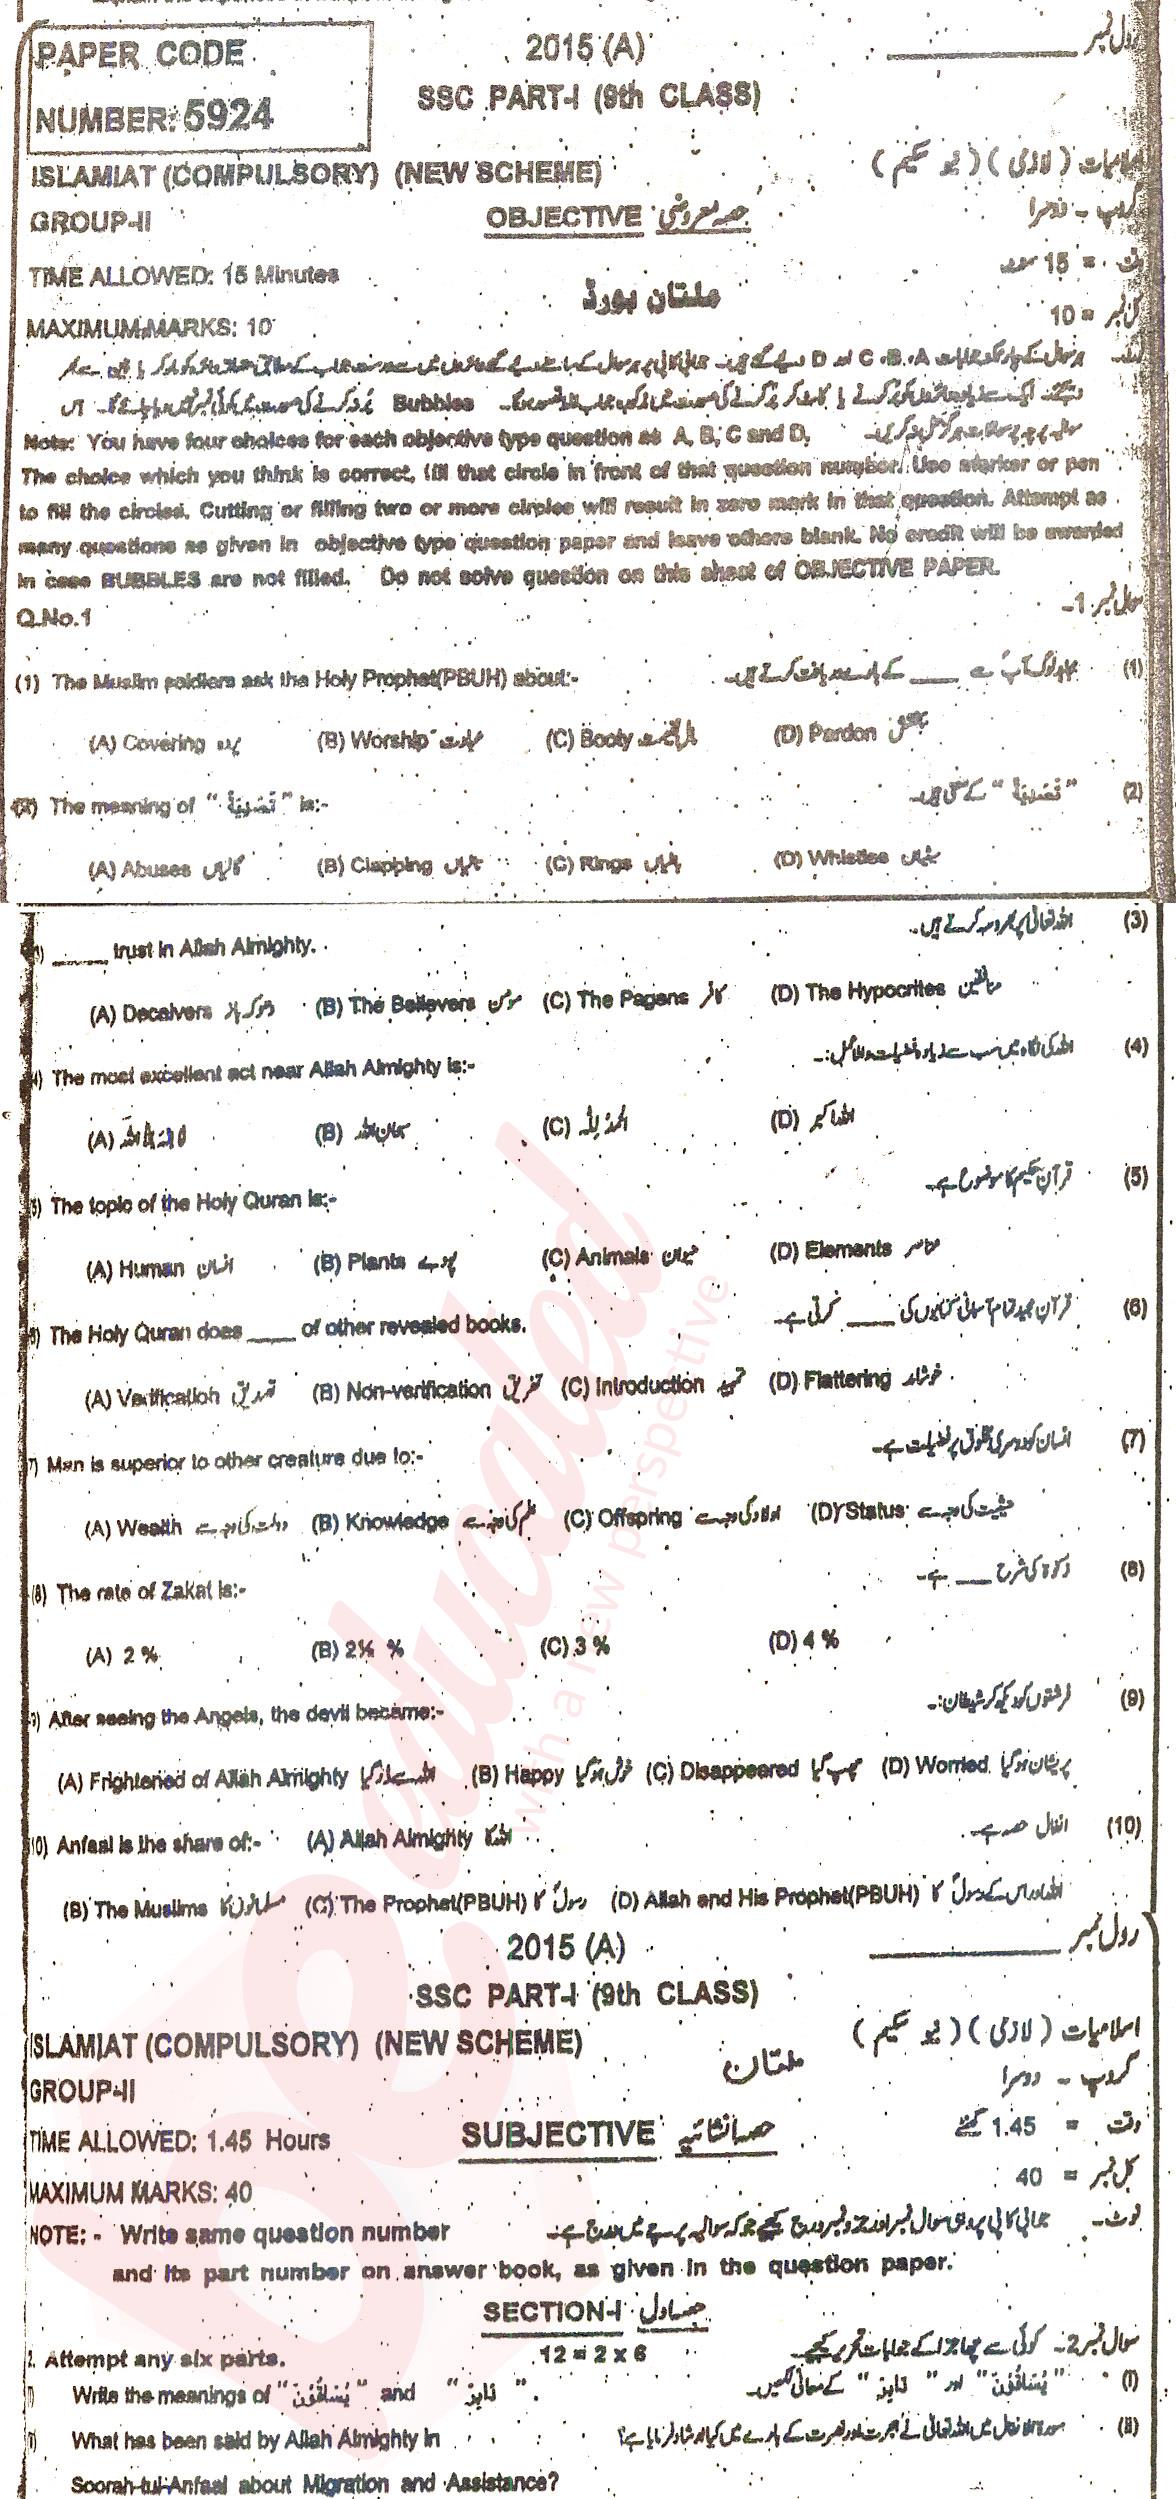 PAPER CODE
NUMBER: 5924
2015 (A)
رول نمبر
SSC PART-I (9th CLASS)
ISLAMIAT (COMPULSORY) (NEW SCHEME)
اسلامیات ( لازمی ) ( نیو سکیم )
GROUP-II
OBJECTIVE حصہ معروضی
گروپ - دوسرا
TIME ALLOWED: 15 Minutes
وقت = 15 منٹ
ملتان بورڈ
MAXIMUM MARKS: 10
کل نمبر = 10
Note: You have four choices for each objective type question as A, B, C and D.
The choice which you think is correct, fill that circle in front of that question number. Use marker or pen
to fill the circles. Cutting or filling two or more circles will result in zero mark in that question. Attempt as
many questions as given in objective type question paper and leave others blank. No credit will be awarded
in case BUBBLES are not filled. Do not solve question on this sheet of OBJECTIVE PAPER.
Q.No.1
سوال نمبر 1-
(1) The Muslim soldiers ask the Holy Prophet(PBUH) about:-
(1)
(A) Covering پردہ (B) Worship عبادت (C) Booty مال غنیمت (D) Pardon بخشش
(2) The meaning of " تَصْدِيَةً " is:-
" تَصْدِيَةً " کے معنی ہیں۔ (2)
(A) Abuses گالیاں (B) Clapping تالیاں (C) Rings بالیاں (D) Whistles سیٹیاں
(3) ____ trust in Allah Almighty.
اللہ تعالیٰ پر بھروسہ کرتے ہیں۔ (3)
(A) Deceivers دھوکہ باز (B) The Believers مومن (C) The Pagens کافر (D) The Hypocrites منافقین
(4) The most excellent act near Allah Almighty is:-
اللہ کی نگاہ میں سب سے زیادہ فضیلت والا عمل:۔ (4)
(A) لا الہ الا اللہ (B) سبحان اللہ (C) الحمدُ للہ (D) اللہ اکبر
(5) The topic of the Holy Quran is:-
قرآن حکیم کا موضوع ہے۔ (5)
(A) Human انسان (B) Plants پودے (C) Animals حیوان (D) Elements عناصر
(6) The Holy Quran does ____ of other revealed books.
قرآن مجید تمام آسمانی کتابوں کی ____ کرتی ہے۔ (6)
(A) Verification تصدیق (B) Non-verification تفریق (C) Introduction تمہید (D) Flattering خوشامد
(7) Man is superior to other creature due to:-
انسان کو دوسری مخلوق پر فضیلت ہے۔ (7)
(A) Wealth دولت کی وجہ سے (B) Knowledge علم کی وجہ سے (C) Offspring اولاد کی وجہ سے (D) Status حیثیت کی وجہ سے
(8) The rate of Zakat is:-
زکوٰۃ کی شرح ___ ہے۔ (8)
(A) 2 % (B) 2½ % (C) 3 % (D) 4 %
(9) After seeing the Angels, the devil became:-
فرشتوں کو دیکھ کر شیطان:۔ (9)
(A) Frightened of Allah Almighty اللہ سے ڈر گیا (B) Happy خوش ہو گیا (C) Disappeared چھپ گیا (D) Worried پریشان ہو گیا
(10) Anfaal is the share of:- (A) Allah Almighty اللہ کا
انفال حصہ ہے۔ (10)
(B) The Muslims مسلمانوں کا (C) The Prophet(PBUH) رسولؐ کا (D) Allah and His Prophet(PBUH) اللہ اور اس کے رسولؐ کا
2015 (A)
رول نمبر
SSC PART-I (9th CLASS)
ISLAMIAT (COMPULSORY) (NEW SCHEME)
اسلامیات ( لازمی ) ( نیو سکیم )
ملتان
GROUP-II
گروپ - دوسرا
TIME ALLOWED: 1.45 Hours
SUBJECTIVE حصہ انشائیہ
وقت = 1.45 گھنٹے
MAXIMUM MARKS: 40
کل نمبر = 40
NOTE: - Write same question number
نوٹ۔ جوابی کاپی پر وہی سوال نمبر اور جزو نمبر درج کیجئے جو کہ سوالیہ پرچے میں درج ہے۔
and its part number on answer book, as given in the question paper.
SECTION-I حصہ اول
2. Attempt any six parts. 12 = 2 x 6
سوال نمبر 2۔ کوئی سے چھ اجزا کے جوابات تحریر کیجئے۔
(i) Write the meanings of " يُسَاقُوْنَ " and " دَابِرَ ".
(i) " يُسَاقُوْنَ " اور " دَابِرَ " کے معانی لکھیں۔
What has been said by Allah Almighty in
(ii) سورۃ الانفال میں اللہ تعالیٰ نے ہجرت اور نصرت کے بارے میں کیا ارشاد فرمایا ہے؟
Soorah-tul-Anfaal about Migration and Assistance?
beeducated
with a new perspective